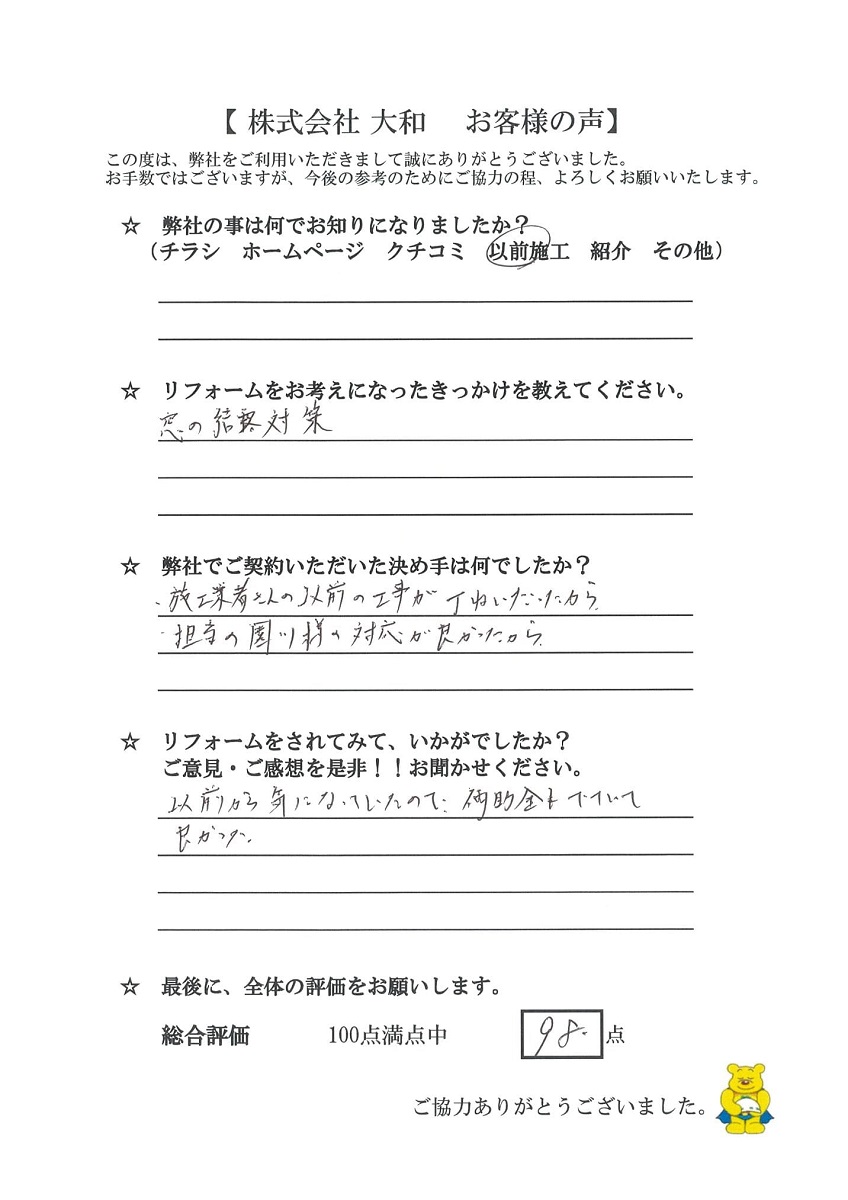 【 株式会社 大和　お客様の声】
この度は、弊社をご利用いただきまして誠にありがとうございました。
お手数ではございますが、今後の参考のためにご協力の程、よろしくお願いいたします。
☆　弊社の事は何でお知りになりましたか？
（チラシ　ホームページ　クチコミ　以前施工　紹介　その他）
☆　リフォームをお考えになったきっかけを教えてください。
窓の結露対策
☆　弊社でご契約いただいた決め手は何でしたか？
・施工業者さんの以前の工事がていねいだったから
・担当の園川様の対応が良かったから
☆　リフォームをされてみて、いかがでしたか？
ご意見・ご感想を是非！！お聞かせください。
以前から気になっていたので、補助金もでていて
良かった。
☆　最後に、全体の評価をお願いします。
総合評価　100点満点中　98.点
ご協力ありがとうございました。